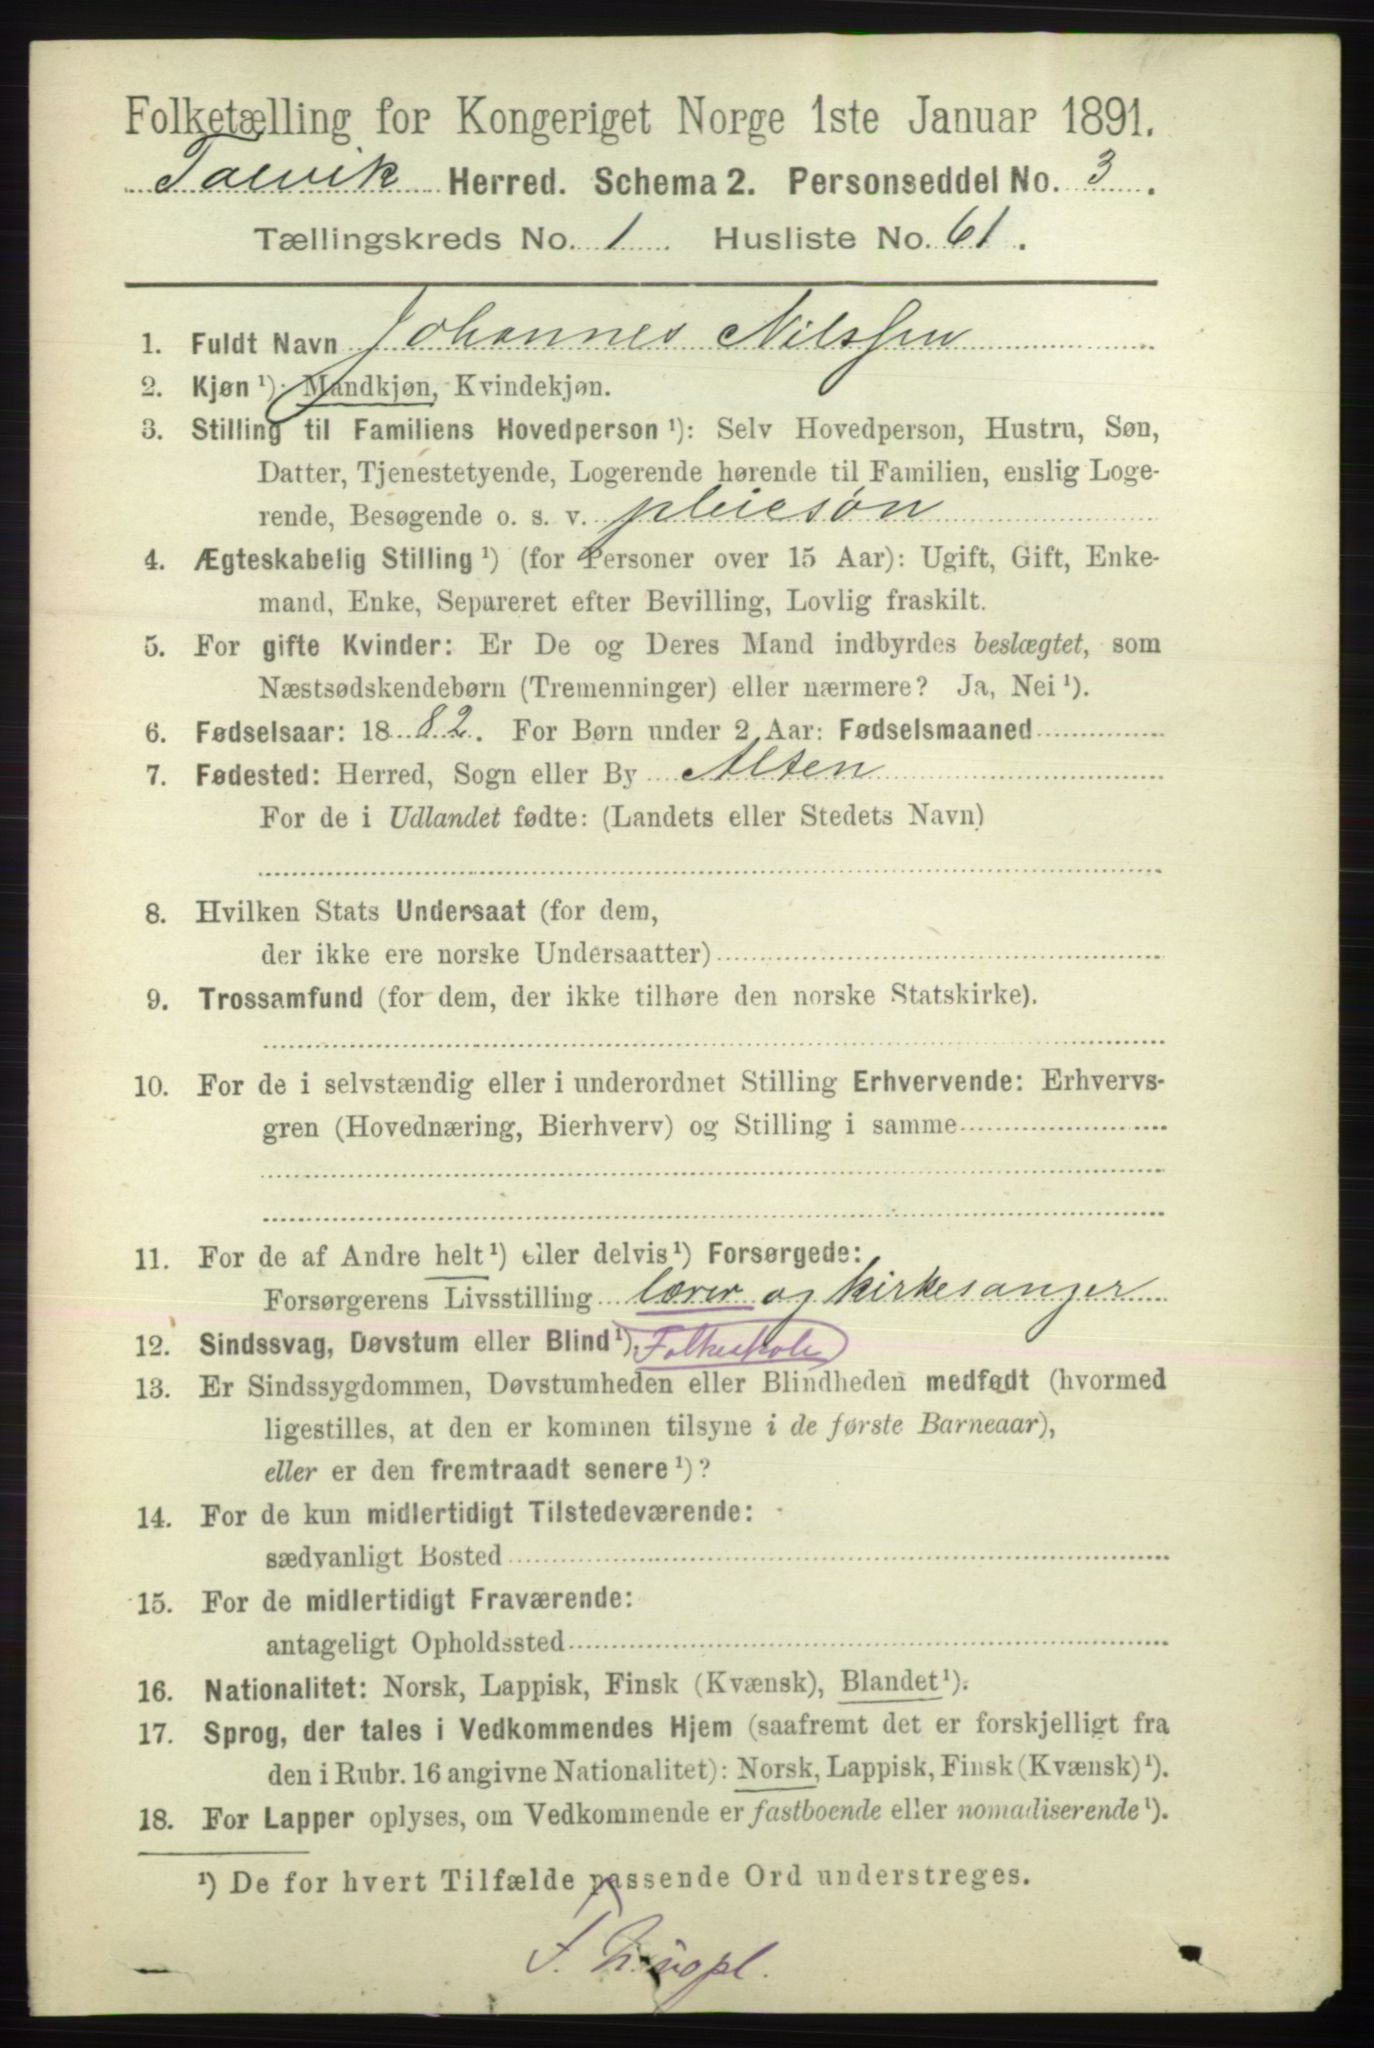 Folketælling for Kongeriget Norge 1ste Januar 1891.
Talvik Herred. Schema 2. Personseddel No. 3.
Tællingskreds No. 1 Husliste No. 61.
1. Fuldt Navn Johannes Nilssen
2. Kjøn ¹): Mandkjøn, Kvindekjøn.
3. Stilling til Familiens Hovedperson ¹): Selv Hovedperson, Hustru, Søn,
Datter, Tjenestetyende, Logerende hørende til Familien, enslig Loge-
rende, Besøgende o. s. v. pleiesøn
4. Ægteskabelig Stilling ¹) (for Personer over 15 Aar): Ugift, Gift, Enke-
mand, Enke, Separeret efter Bevilling, Lovlig fraskilt.
5. For gifte Kvinder: Er De og Deres Mand indbyrdes beslægtet, som
Næstsødskendebørn (Tremenninger) eller nærmere? Ja, Nei ¹).
6. Fødselsaar: 1882. For Børn under 2 Aar: Fødselsmaaned
7. Fødested: Herred, Sogn eller By Alten
For de i Udlandet fødte: (Landets eller Stedets Navn)
8. Hvilken Stats Undersaat (for dem,
der ikke ere norske Undersaatter)
9. Trossamfund (for dem, der ikke tilhøre den norske Statskirke).
10. For de i selvstændig eller i underordnet Stilling Erhvervende: Erhvervs-
gren (Hovednæring, Bierhverv) og Stilling i samme
11. For de af Andre helt ¹) eller delvis ¹) Forsørgede:
Forsørgerens Livsstilling lærer og kirkesanger
12. Sindssvag, Døvstum eller Blind ¹). Folkeskole
13. Er Sindssygdommen, Døvstumheden eller Blindheden medfødt (hvormed
ligestilles, at den er kommen tilsyne i de første Barneaar),
eller er den fremtraadt senere ¹)?
14. For de kun midlertidigt Tilstedeværende:
sædvanligt Bosted
15. For de midlertidigt Fraværende:
antageligt Opholdssted
16. Nationalitet: Norsk, Lappisk, Finsk (Kvænsk), Blandet ¹).
17. Sprog, der tales i Vedkommendes Hjem (saafremt det er forskjelligt fra
den i Rubr. 16 angivne Nationalitet): Norsk, Lappisk, Finsk (Kvænsk) ¹).
18. For Lapper oplyses, om Vedkommende er fastboende eller nomadiserende ¹).
¹) De for hvert Tilfælde passende Ord understreges.